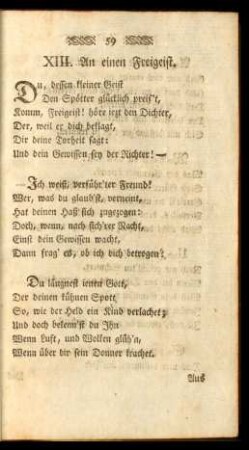 59
XIII. An einen Freigeist.
Du, dessen kleiner Geist
Den Spötter glücklich preis't,
Komm, Freigeist! höre iezt den Dichter,
Der, weil er dich beklagt,
Dir deine Torheit sagt:
Und dein Gewissen sey der Richter! —
— Ich weiß, verführ'ter Freund!
Wer, was du glaub'st, verneint,
Hat deinen Haß sich zugezogen:
Doch, wenn, nach sich'rer Nacht,
Einst dein Gewissen wacht,
Dann frag' es, ob ich dich betrogen?
Du läugnest ienen Gott,
Der deinen kühnen Spott,
So, wie der Held ein Kind verlachet;
Und doch bekenn'st du Ihn
Wenn Luft, und Wolken glüh'n,
Wenn über dir sein Donner krachet.
Aus